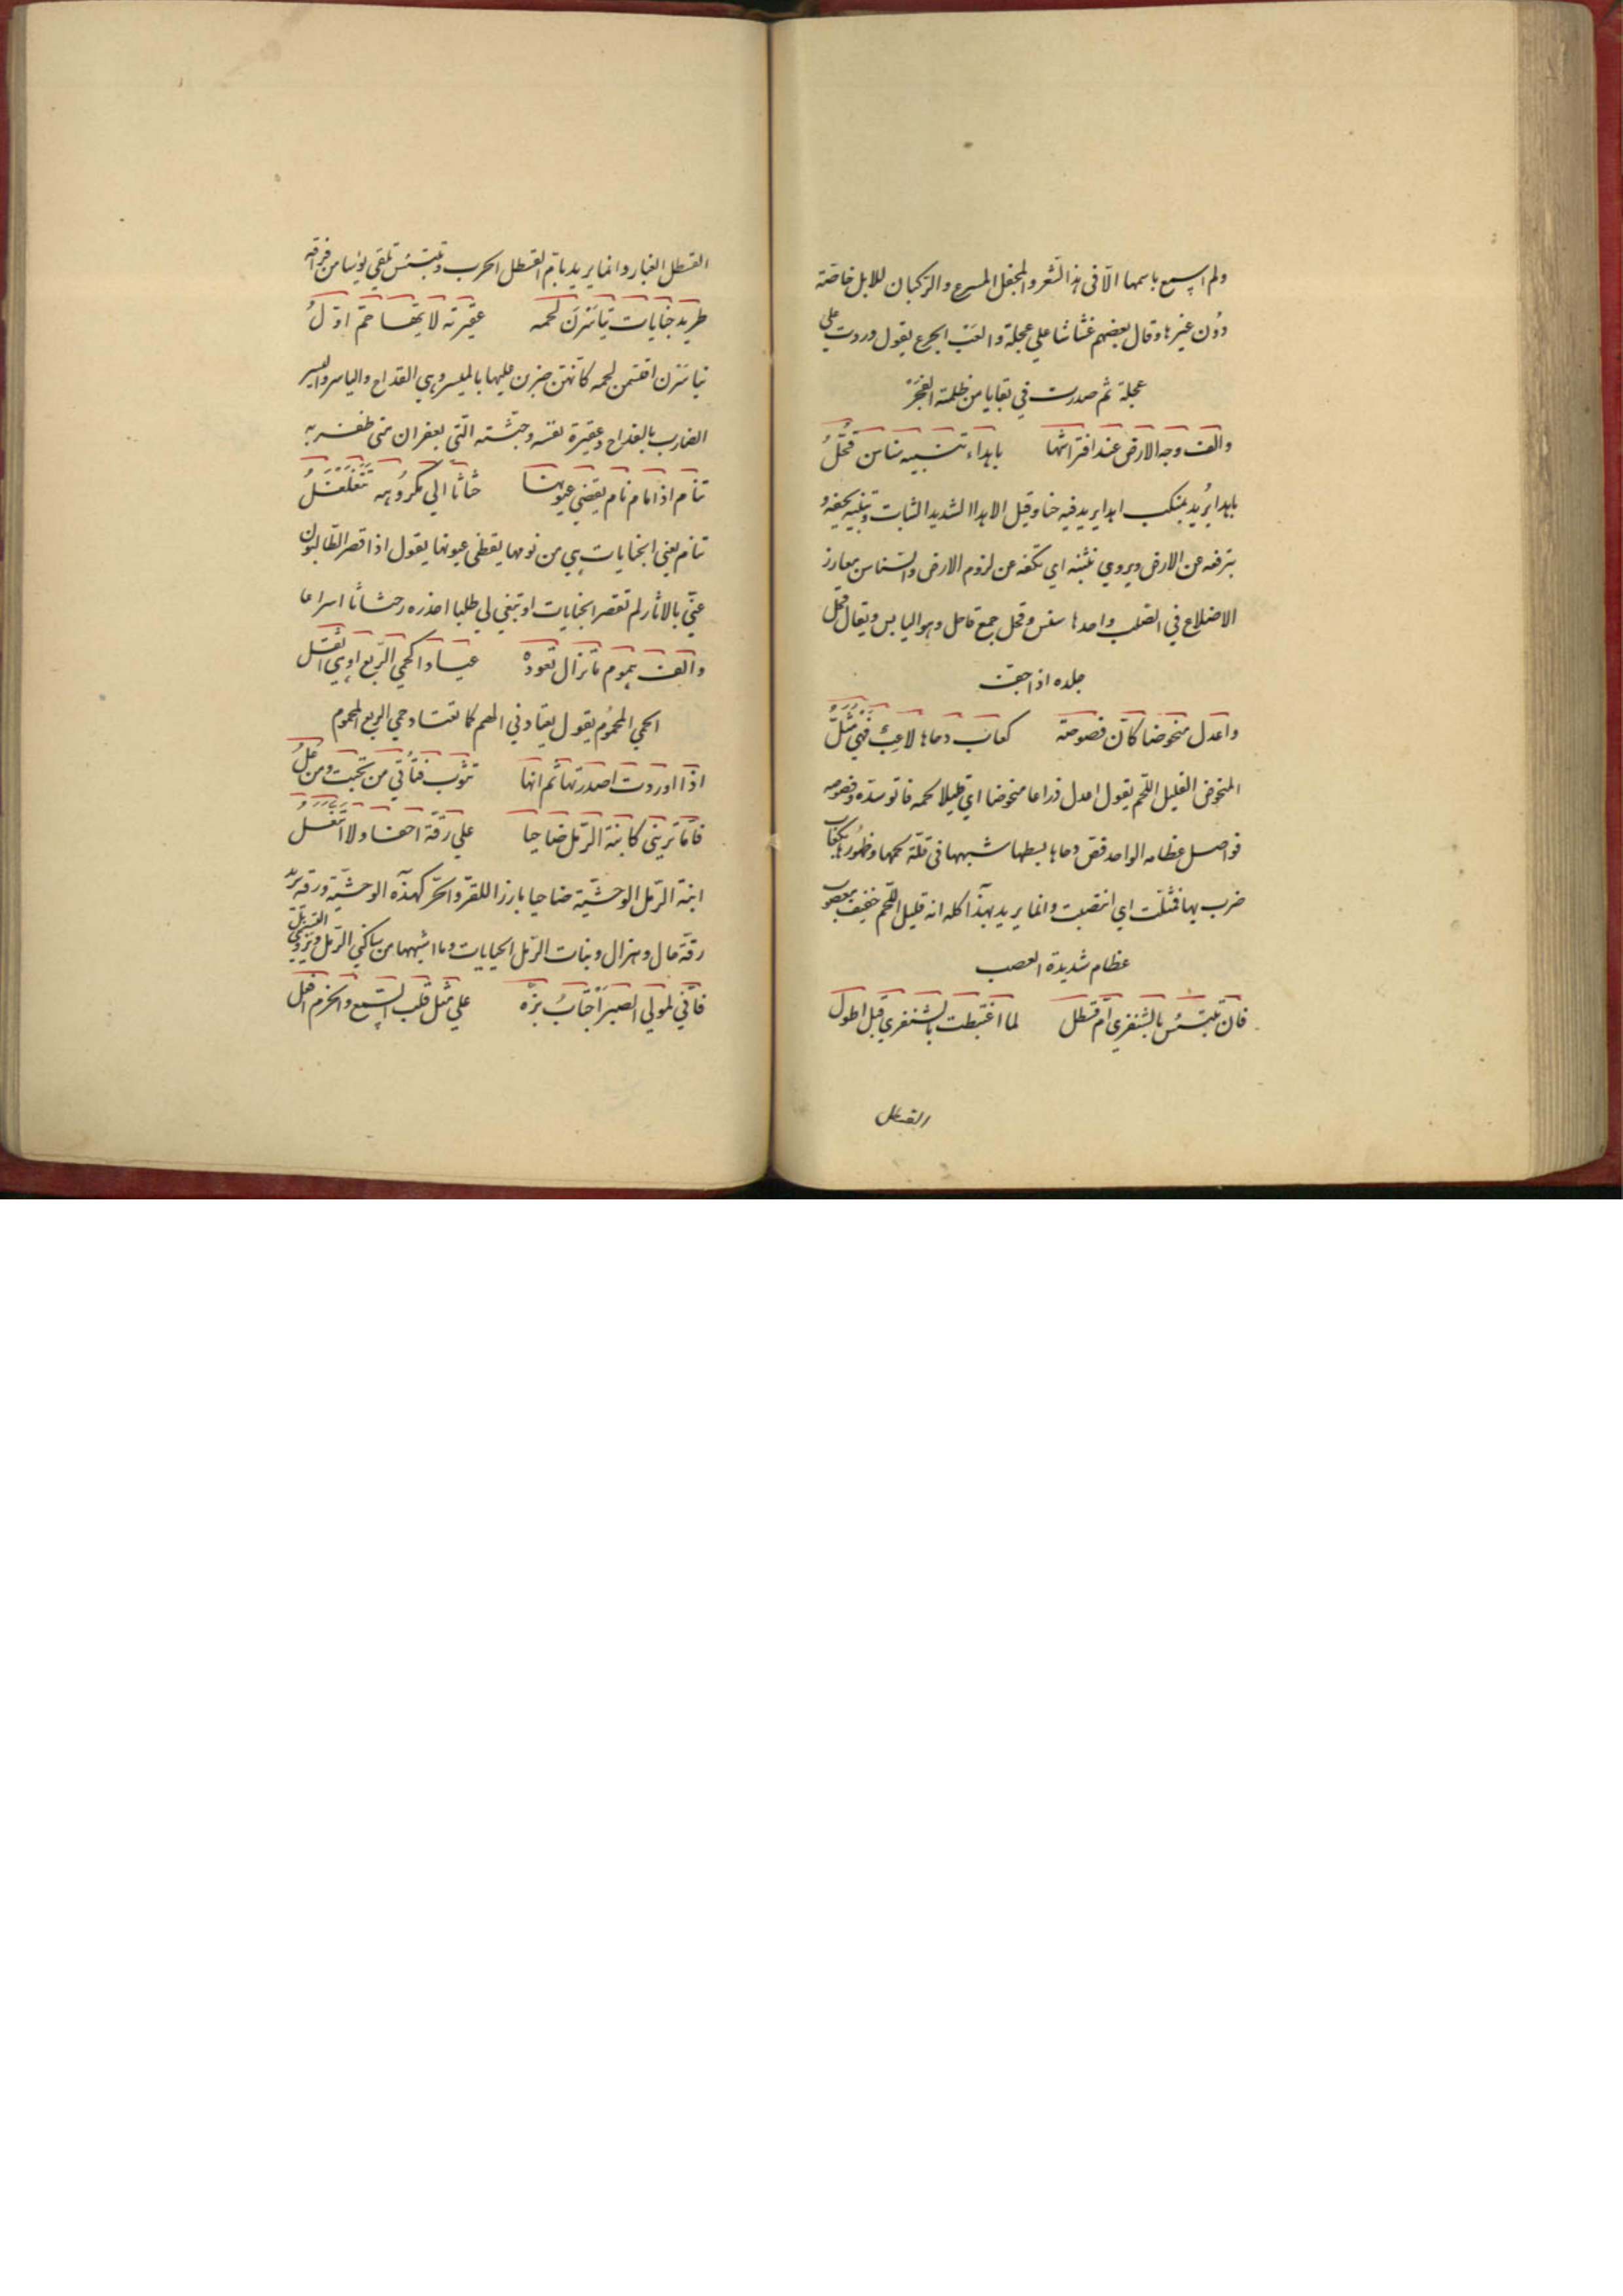 ولم اسمع باسمها الّا فى هذا الشعر والمجفل المسرع والركبان للابل خاصّة
دُون غيرها وقال بعضهم غشاشا علي عجلة والعَبّ الجرع يقول وردت علي
عجلة ثم صدرت في بقايا من ظلمة الفجر
والف وجه الارض عند افتراشها باهداء تنبيه سناسن قُحَّلُ
باهدا يُريد بمنكب اهدا يريد فيه حنا وقيل الاهدا الشديد الثبات وتنبيه تجفيه و
ترفعه عن الارض ويروي تثنيه اي تكفه عن لزوم الارض والسناسن مغارز
الاضلاع في الصلب واحدها سنسن وقحل جمع قاحل وهو اليابس ويقال قحل
جلده اذا جف
واعدل منحوضا كانّ فصوصه كعاب دحاها لاعِبٌ فَهْيَ مُثَّلُ
المنحوض القليل اللحم يقول اعدل ذراعا منحوضا اي قليلا لحمه فاتوسده وفصوصه
فواصل عظامه الواحد فص دحاها بسطها شبهها فى قلة لحمها وظهُورها بكعاب
ضرب بها فمثلت اي انتصبت وانما يريد بهذا كله انه قليل اللحم خفيف معصوب
عظام شديدة العصب
فان تبتئس بالشنفري امّ قسطل لما اغتبطت بالشنفري قبل اطول
القسطل
القسطل الغبار وانما يريد بامّ القسطل الحرب وتبتئس تلقي بؤسا من فراقه
طريد جنايات تياسَرْنَ لحمه عقيرته لايّها حُمّ اوّلُ
تياسَرْن اقتسمن لحمه كانهنّ ضربن عليها بالميسر وهي القداح والياسر واليسر
الضارب بالقداح وعقيرة نفسه وجثته التي يعقران متى ظفر به
تنام اذا مام نام يقضي عيونها حثاثا الي مكرُوهه تَتَغَلْغَلُ
تنام يعني الجنايات هي من نومها يقظى عيونها يقول اذا قصر الطالبون
عنّي بالاثار لم تقصر الجنايات او تبغي لي طلبا احذره وحثاثا اسراعا
والف هموم ماتزال تعودُه عيادا كحمي الرّبع او هي اثقل
الحمي المحمُوم يقول يعتادني الهم كما تعتاد حمي الربع المحموم
اذا اوردت اصدرتها ثم انها تثوب فتأتي من تحيت ومن علُ
فامّا تريني كابنة الرمل ضاحيا علي رقّة احفا ولا اتَنَعَّلُ
ابنة الرّمل الوحشيّة ضاحيا بارزا للقرّ والحرّ كهذه الوحشيّة ورقّة يريد
رقّة حال وهزال وبنات الرّمل الحيايات وما اشبهها من ساكني الرّمل ويروي
فانّي لمولي الصبر اَجْتَابُ بزّه علي مثل قلب السّمع والحزم افعل